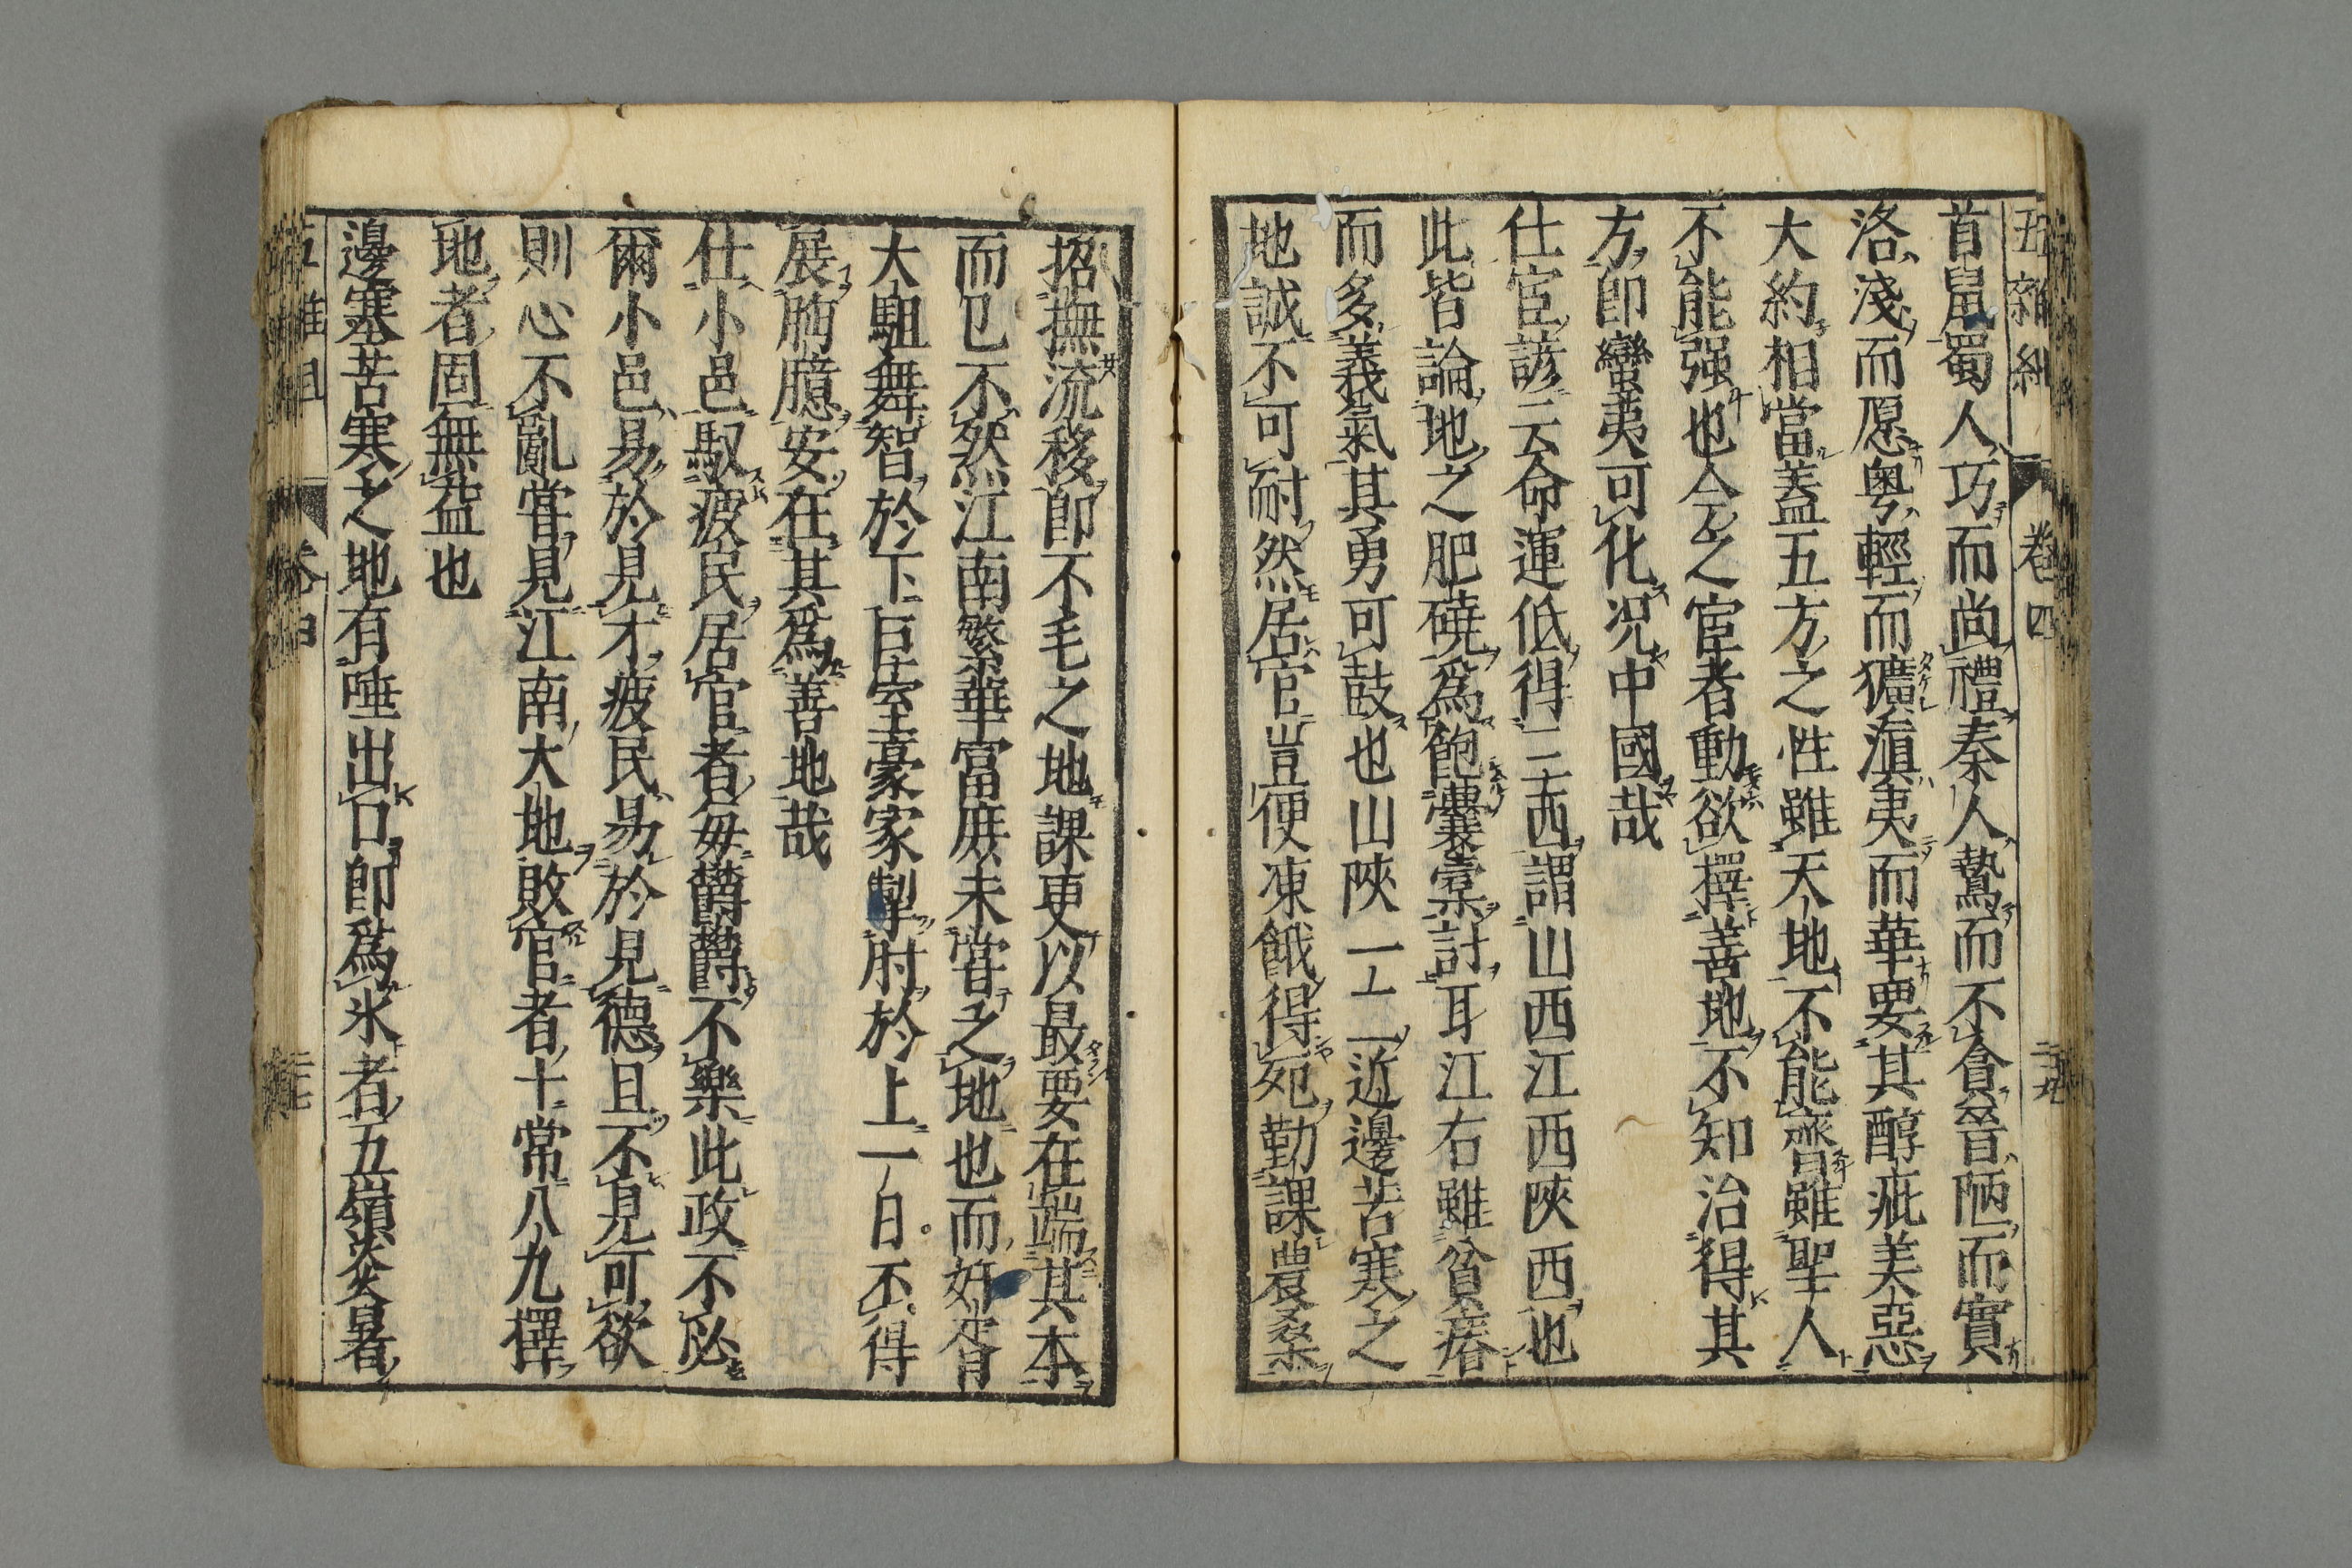 五雜組 卷四
首鼠蜀人巧而尚禮秦人鷙而不貪晉陋而實
洛淺而愿粤輕而獷滇夷而華要其醇疵美惡
大約相當蓋五方之性雖天地不能齊雖聖人
不能强也今之宦者動欲擇善地不知治得其
方卽蠻夷可化况中國哉
仕宦諺云命運低得三西謂山西江西陝西也
此皆論地之肥磽爲飽囊橐計耳江右雖貧瘠
而多義氣其勇可鼓也山陝一二近邊苦寒之
地誠不可耐然居官豈便凍餓得宛勤課農桑
招撫流移卽不毛之地課更以最要在端其本
而已不然江南繁華富庶未嘗乏地也而奸胥
大駔舞智於下巨室豪家掣肘於上一日不得
展胸臆安在其爲善地哉
仕小邑馭疲民居官者每鬱鬱不樂此政不必
爾小邑易於見才疲民易於見德且不見可欲
則心不亂嘗見江南大地敗官者十常八九擇
地者固無益也
邊塞苦寒之地有唾出口卽爲氷者五嶺炎暑